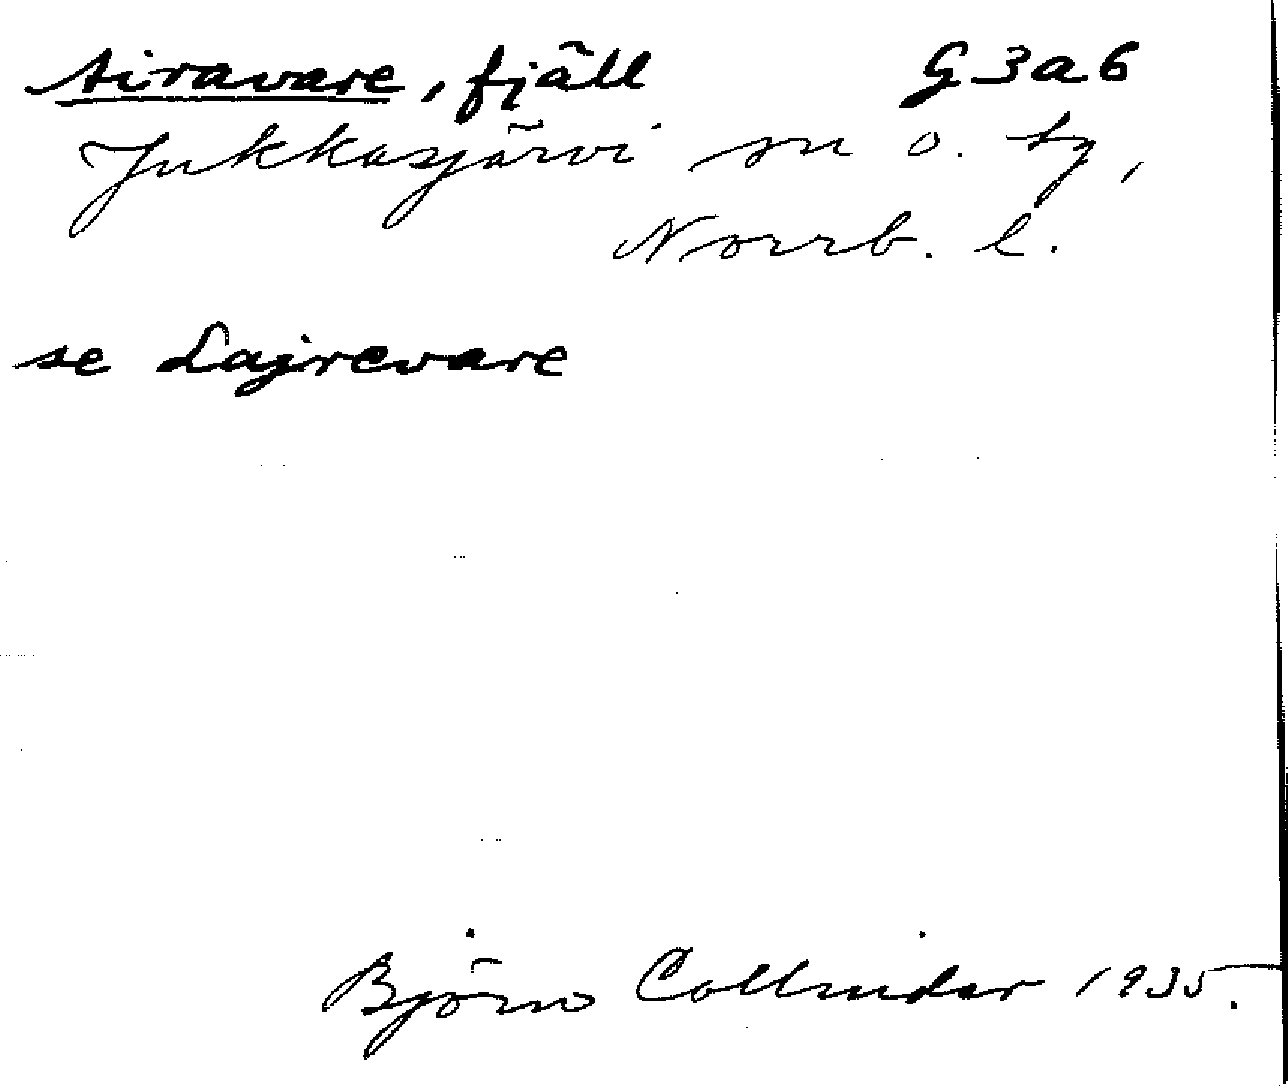 Airavare, fjäll G3a6
Jukkasjärvi sn o. tg,
Norrb. l.
se Lajrevare
Björn Collinder 1935.